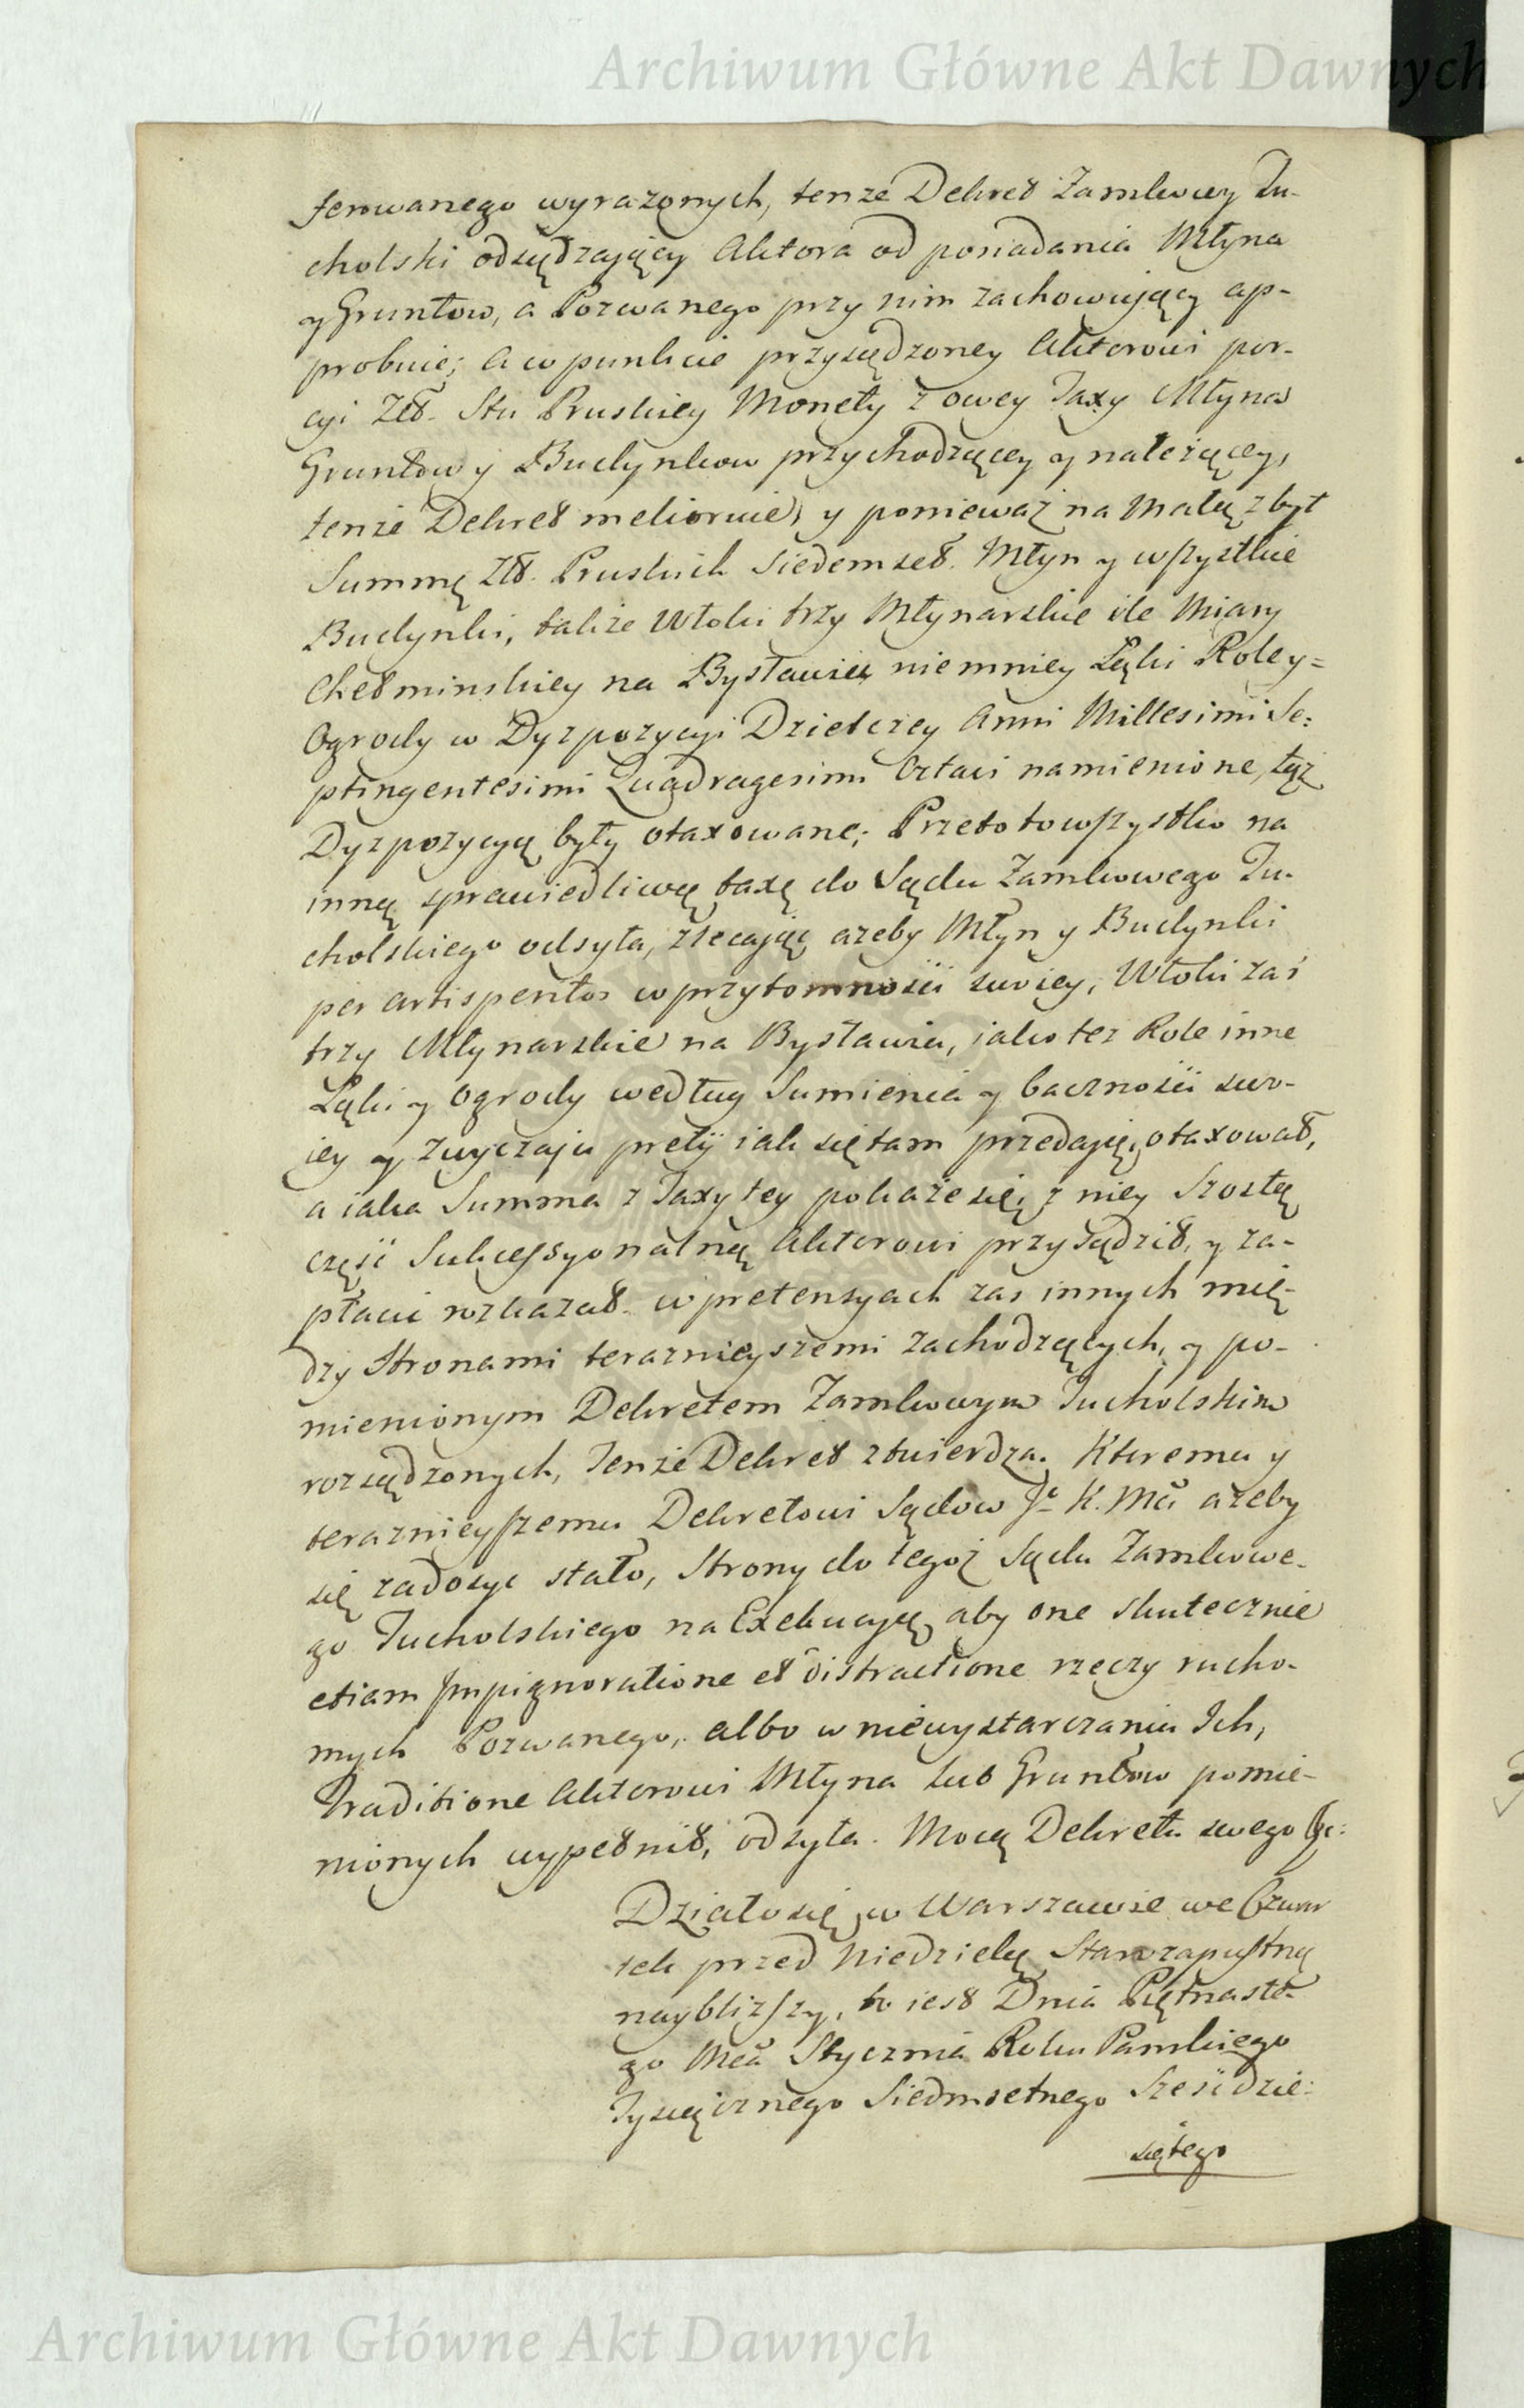 Archiwum Główne Akt Dawnych
ferowanego wyrazonych, tenze Dekret Zamkowy Tu-
cholski odsądzaiący Aktora od posiadania Młyna
y Gruntow, a Pozwanego przy nim zachowujący ap-
probuie; a w punkcie przysądzoney Aktorowi por-
cyi Złł. Stu Pruskiey Monety z owey Taxy Młyna
Gruntow y Budynkow przychodzącey y należącey,
tenże Dekret melioruie, y ponieważ na małą zbyt
Summę Złł. Pruskich Siedemset. Młyn y wszystkie
Budynki, takze Włoki trzy Młynarskie ile Miary
Chełminskiey na Bystawiu niemniey Łąki Roley=
Ogrody w Dyzpozycyi Dzielczey Anni Millesimi Se:
ptingentesimi Quadragesimi Octavi namienione, tąż
Dyzpozycyą były otaxowane; Przeto to wszystko na
inną sprawiedliwą taxę do Sądu Zamkowego Tu-
cholskiego odsyła, zlecaiąc azeby Młyn y Budynki
per artis peritos w przytomności swoiey, Włoki zaś
trzy Młynarskie na Bystawiu, iako tez Role inne
Łąki y Ogrody według Sumienia y baczności swo-
iey y zwyczaju pretij iak się tam przedaią, otaxował,
a iaka Summa z Taxy tey pokaże się, z niey Szostą
część Sukcessyonalną Aktorowi przysądził, y za-
płacić rozkazał. w pretensyach zas innych mię-
dzy Stronami teraznieyszemi zachodzących, y po-
mienionym Dekretem Zamkowym Tucholskim
rozsądzonych, Tenże Dekret ztwierdza. Któremu y
teraznieyszemu Dekretowi Sądow Je K. Mci ażeby
się zadosyc stało, Strony do tegoż Sądu Zamkowe-
go Tucholskiego na Exekucyą, aby one skutecznie
etiam Impignoratione et distractione rzeczy rucho-
mych Pozwanego, albo w niewystarczaniu Ich,
Traditione Aktorowi Młyna lub Gruntow pomie-
nionych wypełnił, odsyła. Mocą Dekretu swego &c:
Działo się w Warszawie we Czwar
tek przed Niedzielą Starozapustną
nayblizszy, to iest Dnia Piętnaste-
go Mca Stycznia Roku Panskiego
Tysiącznego Siedmsetnego Sześćdzie:
siątego
Archiwum Główne Akt Dawnych